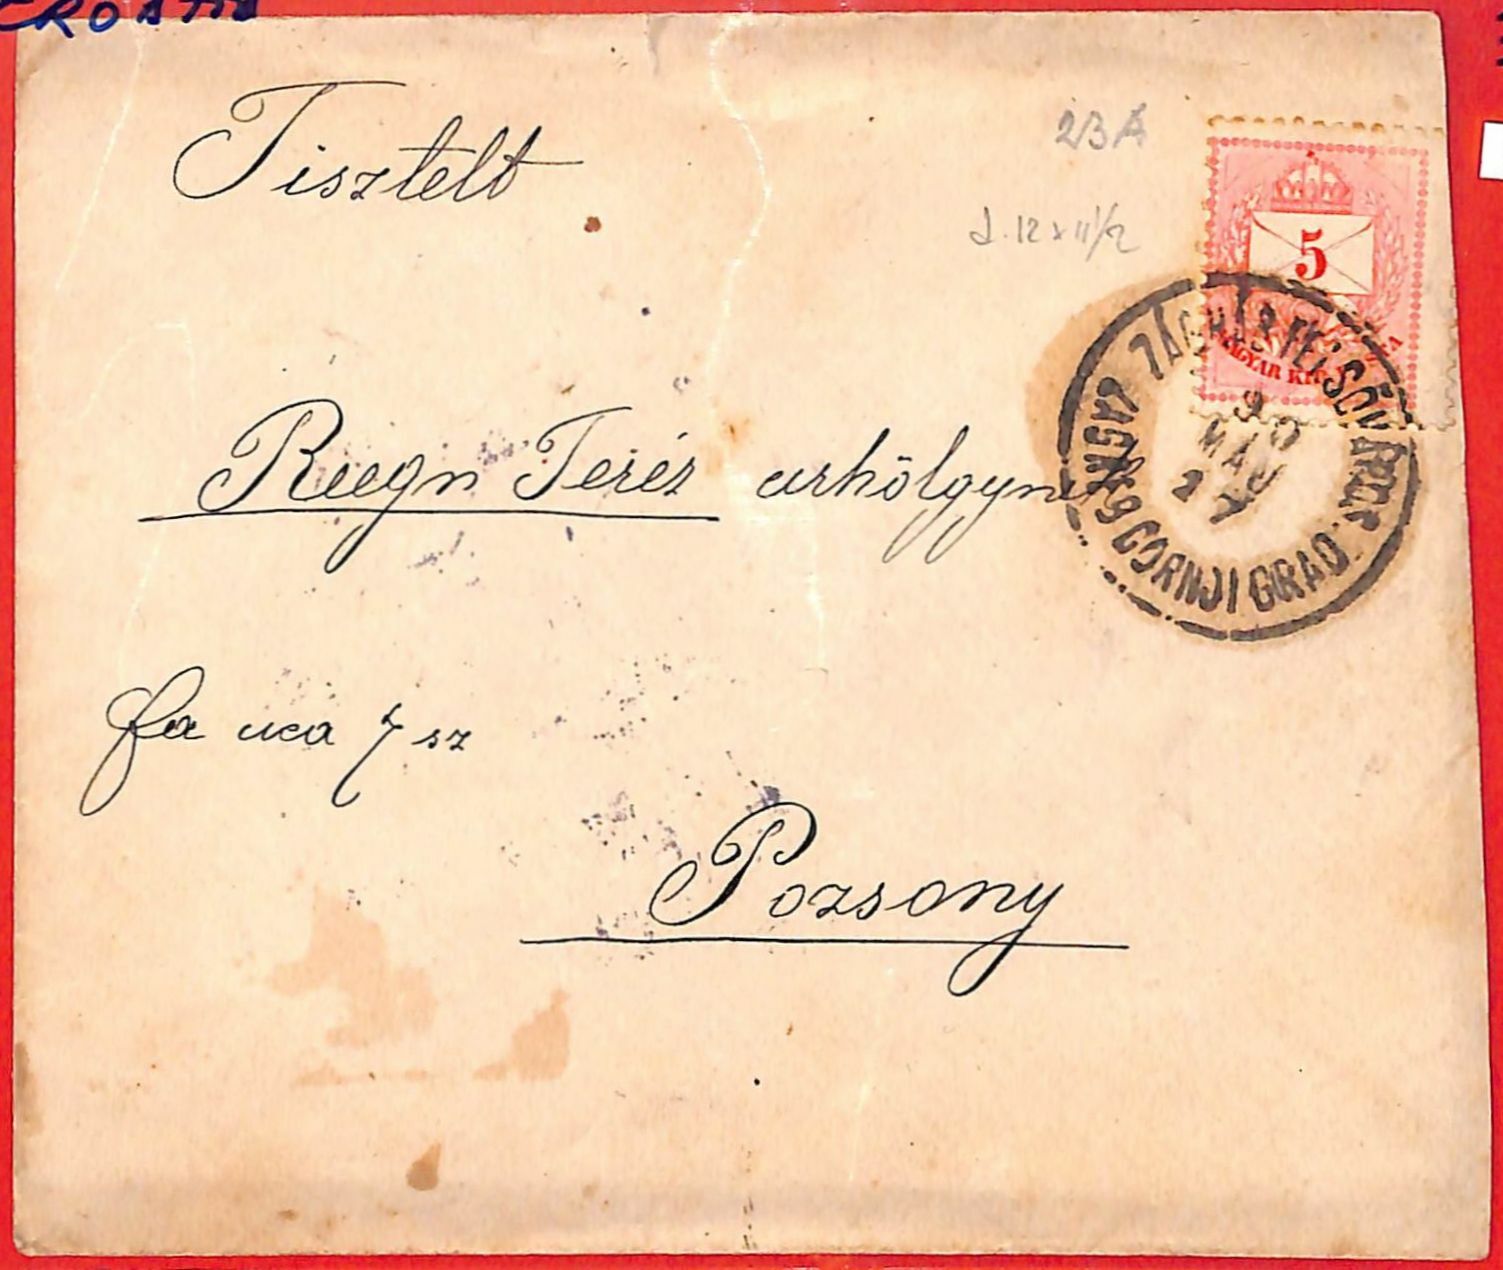 CROATIA
Tisztelt
23A
d. 12 x 11 1/2
5
MAGYAR KIR
ZÁGRÁB FELSŐVÁROS
90
MAR
2
ZAGREB GORNJI GRAD
Reegn Teréz urhölgynek
fa uca 7 sz
Pozsony